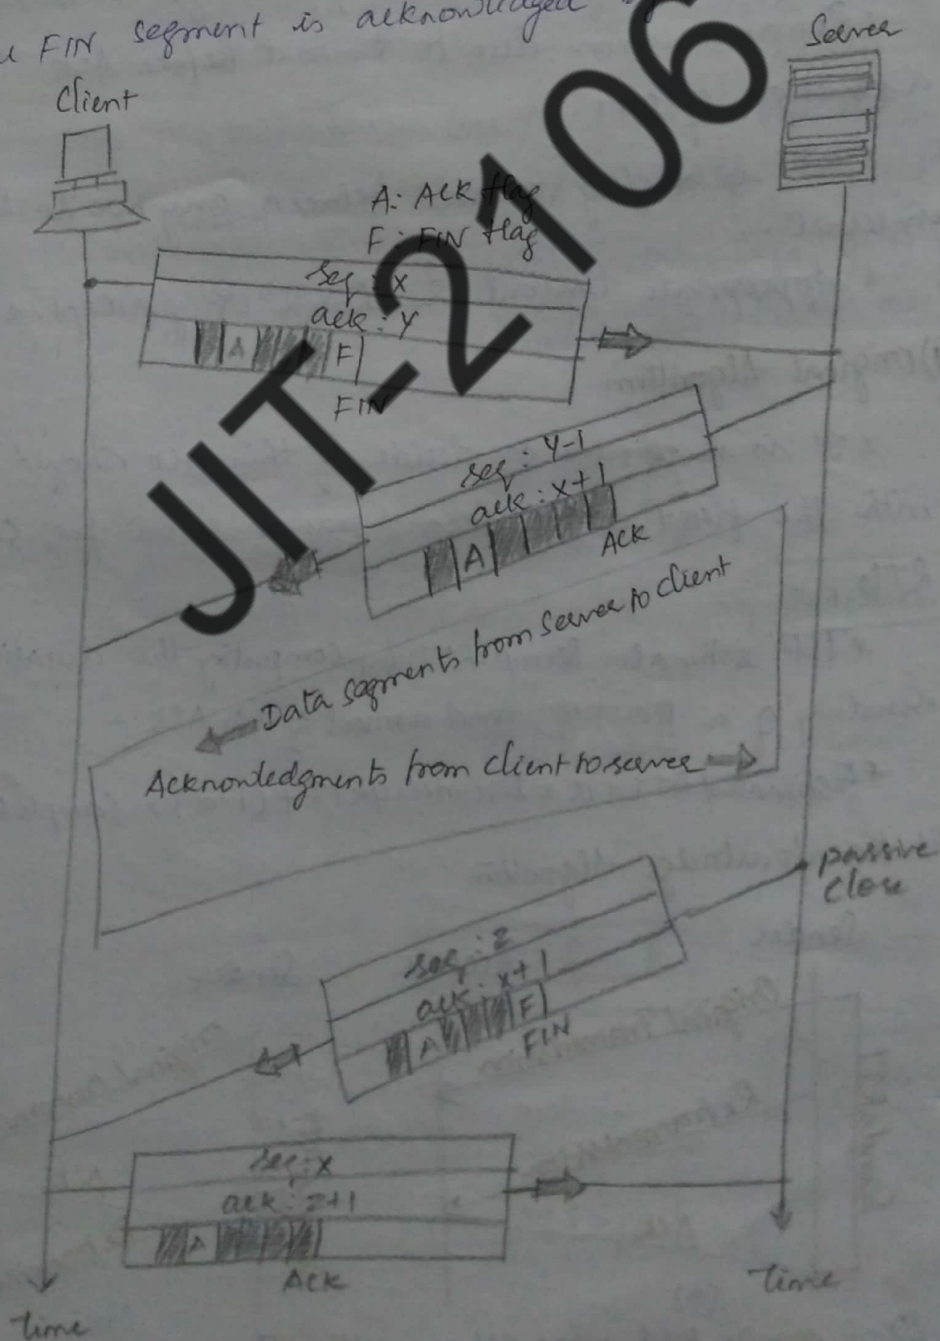 FIN segment is acknowledged
Server
Client
A: ACK flag
F: FIN flag
seq: x
ack: y
A F
FIN
seq: y-1
ack: x+1
A
ACK
Data segments from Server to client
Acknowledgments from client to server
passive
close
seq: z
ack: x+1
A F
FIN
seq: x
ack: z+1
A
ACK
time
time
JIT-2106